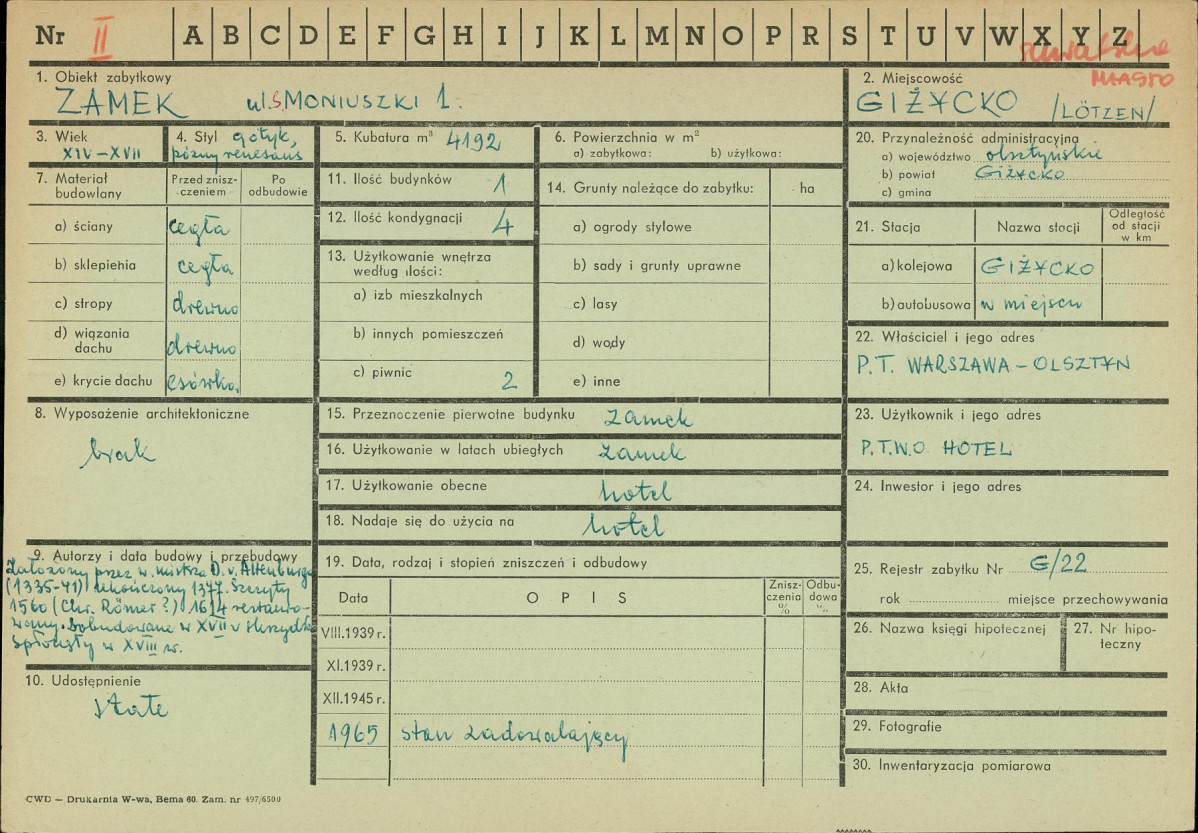 Nr II A B C D E F G H I J K L M N O P R S T U V W X Y Z
suwalskie
MIASTO
1. Obiekt zabytkowy
ZAMEK ul. S. MONIUSZKI 1.
2. Miejscowość
GIŻYCKO /LÖTZEN/
3. Wiek
XIV–XVII
4. Styl gotyk,
późny renesans
5. Kubatura m³ 4192
6. Powierzchnia w m²
a) zabytkowa: b) użytkowa:
7. Materiał
budowlany
Przed znisz-
czeniem
Po
odbudowie
a) ściany cegła
b) sklepienia cegła
c) stropy drewno
d) wiązania
dachu drewno
e) krycie dachu esówka.
8. Wyposażenie architektoniczne
brak
9. Autorzy i data budowy i przebudowy
Założony przez w. mistrza D. v. Altenburga
(1335-41) ukończony 1377. Szczyty
1560 (Chr. Römer ?) 1614 restauro-
wany. Dobudowane w XVII w skrzydła
spłonęły w XVIII w.
10. Udostępnienie
stałe
11. Ilość budynków 1
12. Ilość kondygnacji 4
13. Użytkowanie wnętrza
według ilości:
a) izb mieszkalnych
b) innych pomieszczeń
c) piwnic 2
14. Grunty należące do zabytku: ha
a) ogrody stylowe
b) sady i grunty uprawne
c) lasy
d) wody
e) inne
15. Przeznoczenie pierwotne budynku zamek
16. Użytkowanie w latach ubiegłych zamek
17. Użytkowanie obecne hotel
18. Nadaje się do użycia na hotel
19. Data, rodzaj i stopień zniszczeń i odbudowy
Data OPIS
Znisz-
czenia
%
Odbu-
dowa
%
VIII.1939 r.
XI.1939 r.
XII.1945 r.
1965 stan zadowalający
20. Przynależność administracyjna
a) województwo olsztyńskie
b) powiat Giżycko
c) gmina
21. Stacja Nazwa stacji
Odległość
od stacji
w km
a) kolejowa GIŻYCKO
b) autobusowa w miejscu
22. Właściciel i jego adres
P.T. WARSZAWA – OLSZTYN
23. Użytkownik i jego adres
P.T.W.O HOTEL
24. Inwestor i jego adres
25. Rejestr zabytku Nr G/22
rok miejsce przechowywania
26. Nazwa księgi hipotecznej
27. Nr hipo-
teczny
28. Akta
29. Fotografie
30. Inwentaryzacja pomiarowa
CWD — Drukarnia W-wa, Bema 60. Zam. nr 497/6500